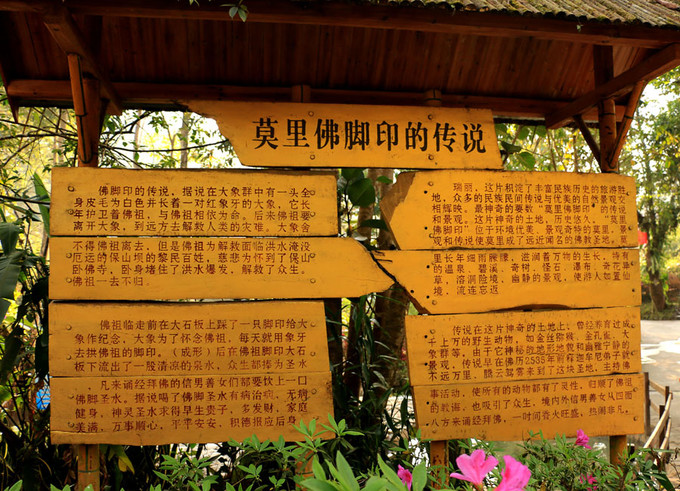 莫里佛脚印的传说
佛脚印的传说，据说在大象群中有一头全
身皮毛为白色并长着一对红象牙的大象，它长
年护卫着佛祖，与佛祖相依为命。后来佛祖要
离开大象，到远方去解救人类的灾难。大象舍
不得佛祖离去。但是佛祖为解救面临洪水淹没
厄远的保山坝的黎民百姓，慈悲为怀到了保山
卧佛寺，卧身堵住了洪水爆发，解救了众生。
佛祖一去不归。
佛祖临走前在大石板上踩了一只脚印给大
象作纪念，大象为了怀念佛祖，每天就用象牙
去拱佛祖的脚印。（成形）后在佛祖脚印大石
板下流出了一股清凉的泉水，众生都捧为圣水
凡来诵经拜佛的信男善女们都要饮上一口
佛脚圣水。据说喝了佛脚圣水有病治病，无病
健身，神灵圣水求得早生贵子，多发财，家庭
美满，万事顺心，平幸安安，积德报应后身。
瑞丽，这片积淀了丰富民族历史的旅游胜
地，众多的民族民俗与优美的自然景观交相
辉映，最神奇的要数“莫里佛脚印”的传说
和景观，这片神奇的土地，历史悠久，“莫里
佛脚印”位于环境优美、景观奇特的莫里，景
观和传说使莫里成了远近闻名的佛教圣地。莫
里长年细雨朦朦，滋润着万物的生长，特有
的温泉、碧溪、奇树、怪石、瀑布、奇花异
草，溶洞险境、幽静的景观，使游人如置仙
境，流连忘返
传说在这片神奇的土地上，曾经养育过成
千上万的野生动物，如金丝称猴、金孔雀、大
象群等。由于它神秘的地形地貌和幽静奇特的
景观，传说是在佛历2535年前释迦牟尼弟子就
不远万里，腾云驾雾来到了这块圣地，从
事活动，使所有的动物都有了灵性，归顺了佛祖
的教诲，也吸引了众生，境内外信男善女从四面
八方来诵经拜佛，一时间香火旺盛，热闹非凡。